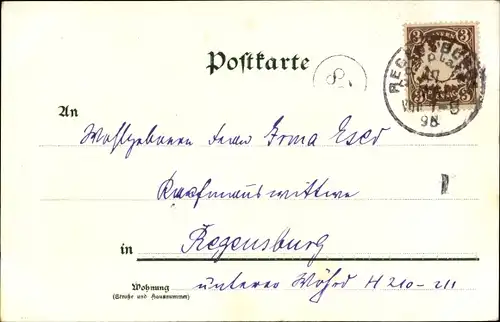 Postkarte
8
3 3
BAYERN
REGENSBURG
VIII 7-8
98
An
Wohlgeboren Frau Irma Eser
Kaufmannswittwe
in Regensburg
Wohnung
(Straße und Hausnummer)
unterer Wöhrd H 210-211